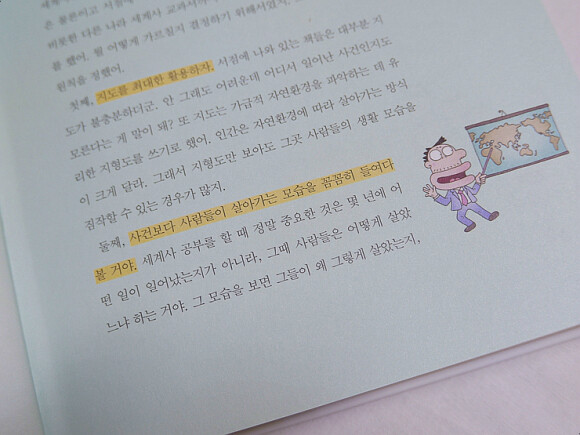 은 물론이고 서점에
비롯한 다른 나라 세계사 교과서
를 했어. 뭘 어떻게 가르칠지 결정하기 위해서였지.
원칙을 정했어.
첫째, 지도를 최대한 활용하자. 서점에 나와 있는 책들은 대부분 지
도가 불충분하더군. 안 그래도 어려운데 어디서 일어난 사건인지도
모른다는 게 말이 돼? 또 지도는 가급적 자연환경을 파악하는 데 유
리한 지형도를 쓰기로 했어. 인간은 자연환경에 따라 살아가는 방식
이 크게 달라. 그래서 지형도만 보아도 그곳 사람들의 생활 모습을
짐작할 수 있는 경우가 많지.
둘째, 사건보다 사람들이 살아가는 모습을 꼼꼼히 들여다
볼 거야. 세계사 공부를 할 때 정말 중요한 것은 몇 년에 어
떤 일이 일어났는지가 아니라, 그때 사람들은 어떻게 살았
느냐 하는 거야. 그 모습을 보면 그들이 왜 그렇게 살았는지,